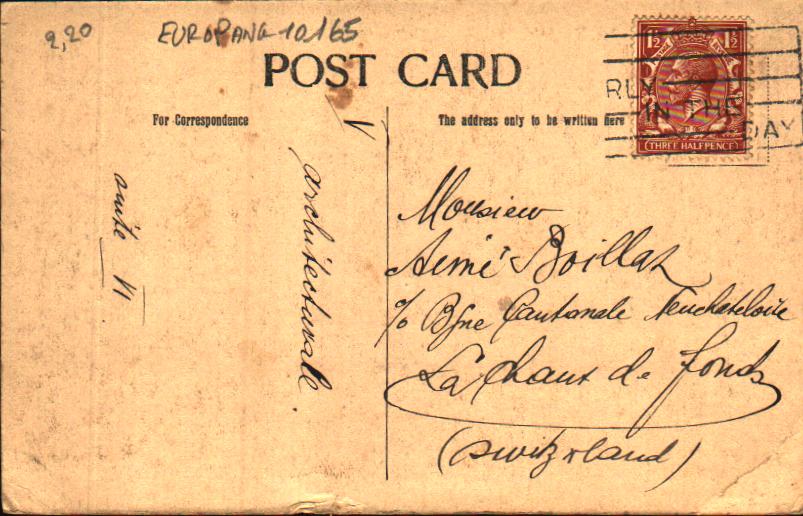 2,20
EUROPANG-10165
POST CARD
For Correspondence
The address only to be written here
1½ 1½
THREE HALFPENCE
RLY
IN THE
DAY
V
architecturale.
suite VI
Monsieur
Aimé Boillat
c/o Bque Cantonale Neuchateloise
La Chaux de fonds
(Switzerland)